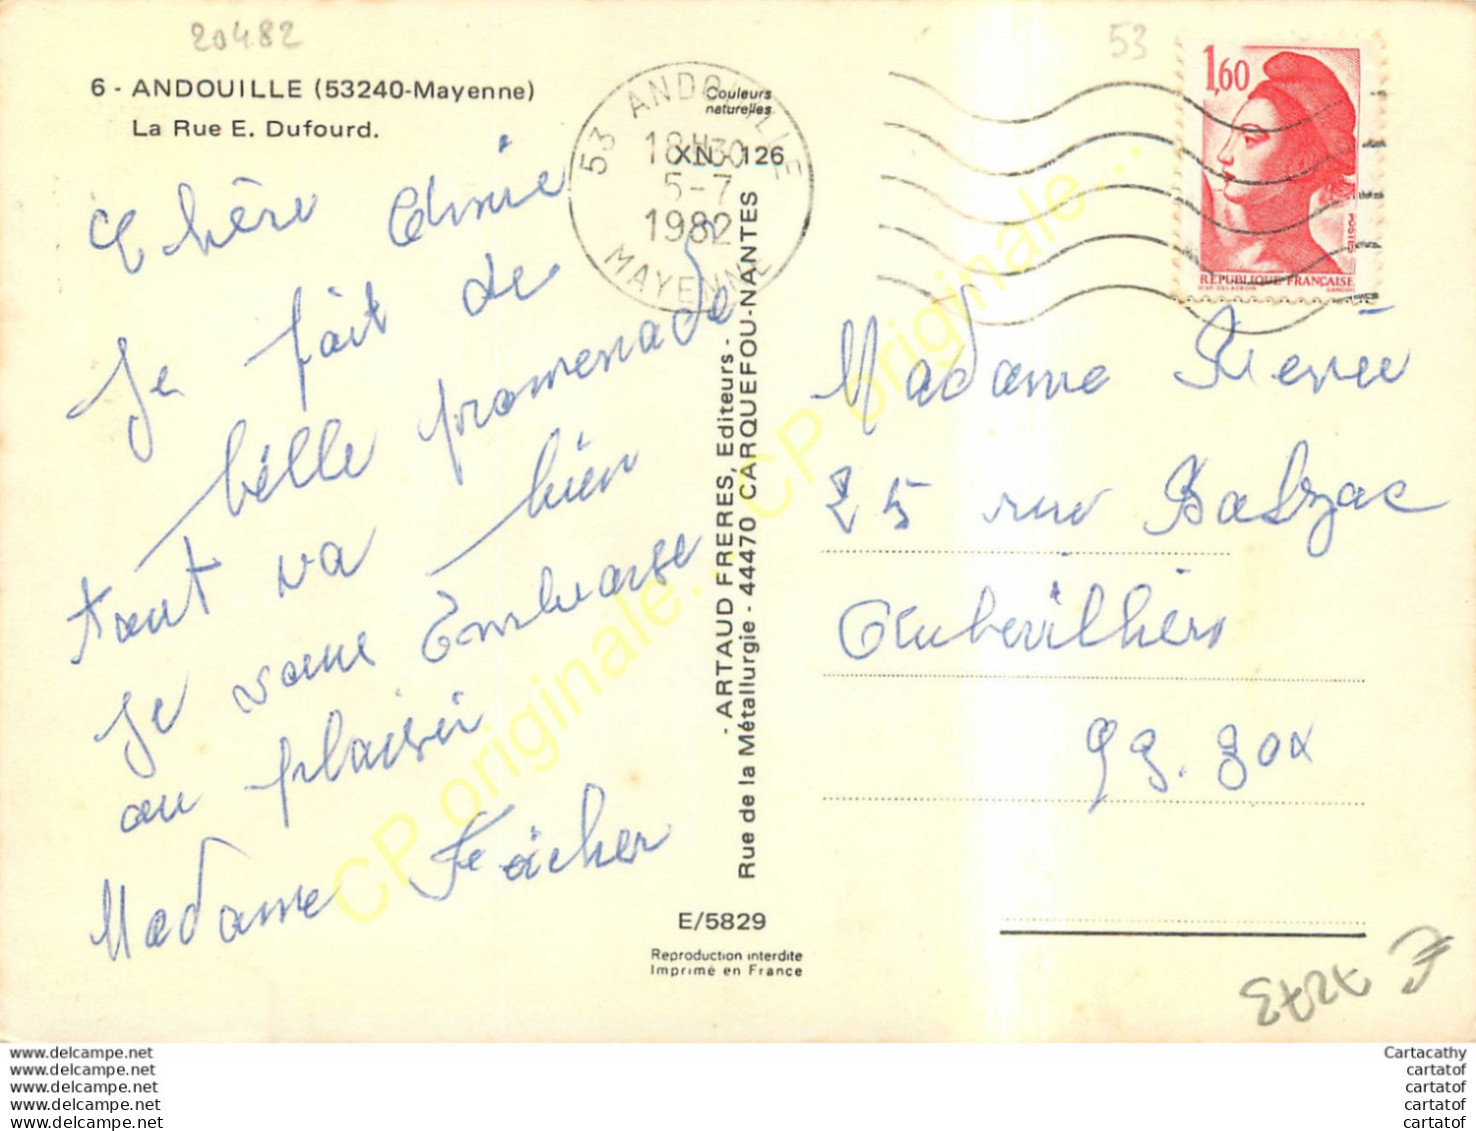 20482
53
6 - ANDOUILLE (53240-Mayenne)
La Rue E. Dufourd.
Couleurs
naturelles
XN - 126
53 ANDOUILLE
18H30
5-7
1982
MAYENNE
1,60
POSTES
RÉPUBLIQUE FRANÇAISE
Chère Amie
Je fait de
belle promenade
tout va bien
Je vous Embrasse
au plaisir
Madame
- ARTAUD FRERES, Editeurs -
Rue de la Métallurgie - 44470 CARQUEFOU-NANTES
Madame
25 rue Balzac
Aubervilliers
93.300
E/5829
Reproduction interdite
Imprimé en France
CP originale... CP originale... CP originale...
www.delcampe.net
www.delcampe.net
www.delcampe.net
www.delcampe.net
www.delcampe.net
Cartacathy
cartatof
cartatof
cartatof
cartatof